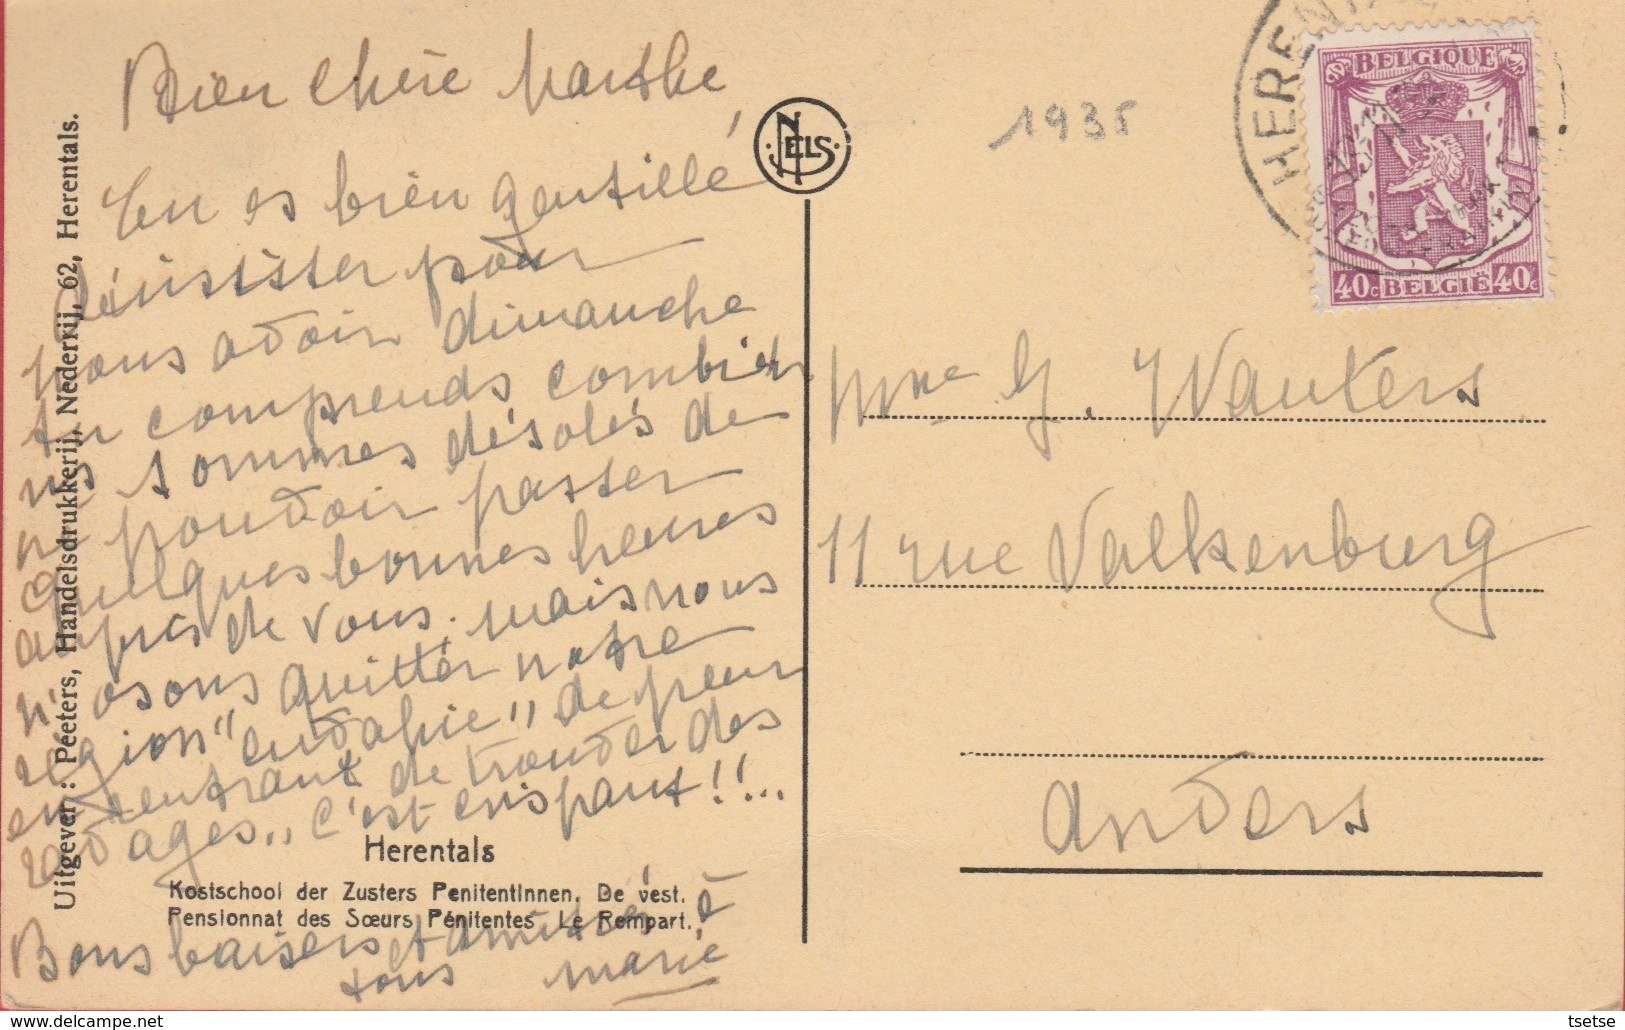 Bien chère Marthe,
Tu es bien gentille
d'insister pour
nous avoir dimanche
tu comprends combien
ns sommes désolés de
ne pouvoir passer
quelques bonnes heures
auprès de vous. Mais nous
n'osons quitter notre
région "envahie" de peur
en rentrant de trouver des
ravages,, c'est crispant!!...
Bons baisers et amitiés à
tous Marie
Uitgever : Peeters, Handelsdrukkerij, Nederrij, 62, Herentals.
Herentals
Kostschool der Zusters Penitentinnen. De vest.
Pensionnat des Sœurs Pénitentes Le Rempart.
NELS
1935
HERENTALS
BELGIQUE
40c BELGIË 40c
Mme G. Wauters
11 rue Valkenburg
Anvers
delcampe.net
tsetse